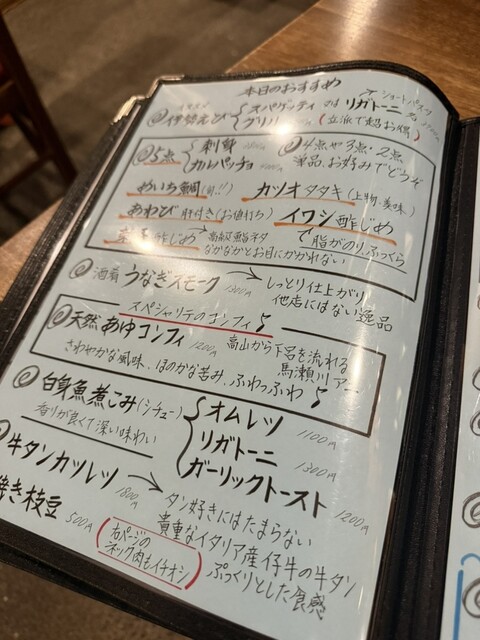 本日のおすすめ
伊勢えび
スパゲッティ or リガトーニ
ショートパスタ
グリル (立派で超お得)
5点 刺身
カルパッチョ
4点や3点・2点
洋品、お好みでどうぞ
めいち鯛
カツオタタキ (上物・美味)
あわび 肝付き (お値打ち)
イワシ酢じめ
で脂がのり、ふっくら
酢じめ → 高級鮨ネタ
なかなかとお目にかかれない
酒肴 うなぎスモーク 1300円
→ しっとり仕上がり
他店にはない逸品
スペシャリテのコンフィ♪
天然あゆコンフィ 1200円
高山から下呂を流れる
馬瀬川アユ
さわやかな風味、ほのかな苦み、ふわっふわ♪
白身魚煮こみ(シチュー)
香りが良くて深い味わい
オムレツ 1100円
リガトーニ 1300円
ガーリックトースト 1200円
牛タンカツレツ 1800円
→ タン好きにはたまらない
貴重なイタリア産仔牛の牛タン
ぷっくりとした食感
焼き枝豆 500円
(右ページの
ネック肉もイチオシ)